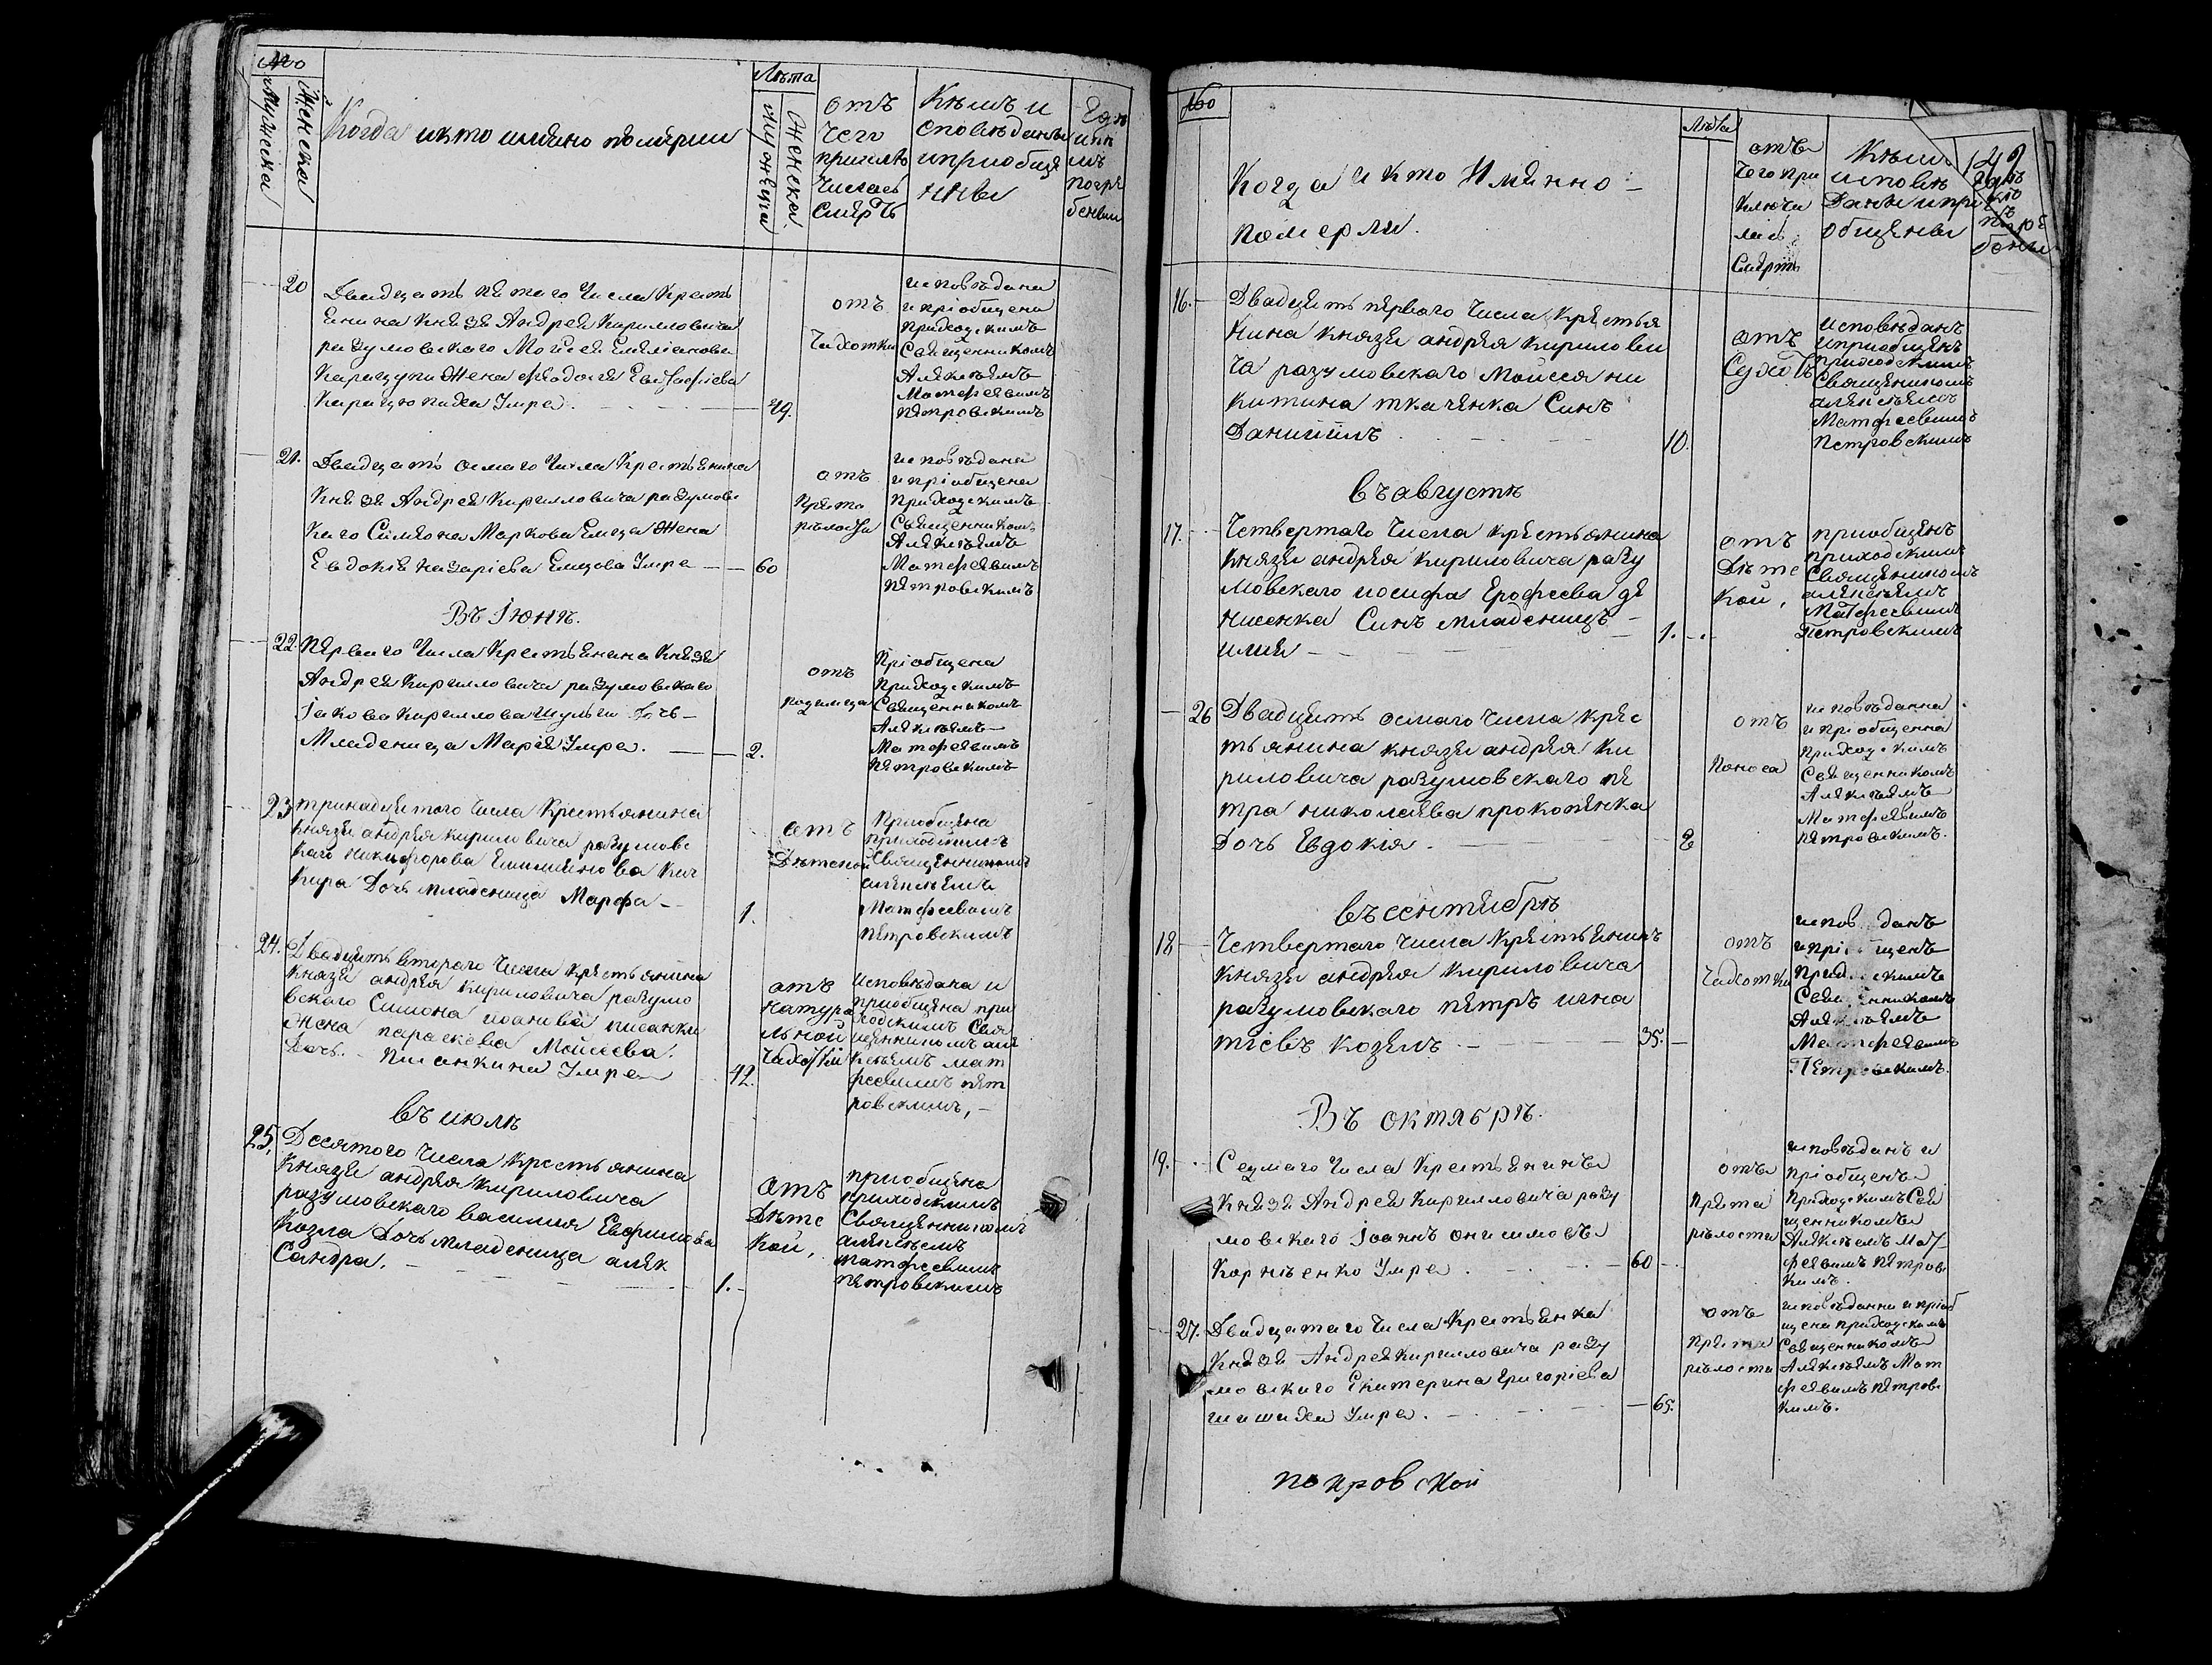 №
Мужеска
Женска
Когда и кто имянно померли
Лѣта
Мужеска
Женска
отъ
чего
приклю
чилась
смерть
Кѣмъ и
сповѣданы
и приобще
нны
Гдѣ
и кѣ
мъ
погре
бенны
20
Двадцать пятаго Числа Кресть
янина Князя Андрея Кирилловича
разумовскаго Мойсея Емелианова
Карацупи Жена Феодосия Евстафиева
Карацюпиха Умре.
49.
отъ
Чахотки
исповѣдана
и пріобщена
приходскимъ
Священникомъ
Алексѣемъ
Матфеевымъ
Петровскимъ
21.
Двадцать осмаго Числа Крестьянина
Князя Андрея Кирилловича разумовс
каго Симеона Маркова Емца Жена
Евдокія Назаріева Емцова Умре
60
отъ
Преста
рѣлости
исповѣдана
и пріобщена
Приходскимъ
Священникомъ
Алексѣемъ
Матфеевымъ
Петровскимъ
Въ Іюнѣ.
22.
Перваго Числа Крестьянина Князя
Андрея Кирилловича разумовскаго
Іакова Кириллова Шульги дочь
Младеница Марія Умре.
2.
отъ
родимца
Пріобщена
Приходскимъ
Священникомъ
Алексѣемъ
Матфеевымъ
Петровскимъ
23
тринадцятого Числа Крестьянина
Князя андрея кириловича разумовс
каго Никифорова Емилиянова Кич
кира Дочь младеница Марфа
1.
отъ
Дѣтской
Приобщена
приходскимъ
Священникомъ
алексѣемъ
Матфеевимъ
петровскимъ
24.
Двадцять второго Числа Крестьянина
князя андрея Кириловича разумо
вского Симона иоанова писанки
Жена параскева Мойсеева.
Дочь. Писанкина Умре
42.
отъ
натура
льной
Чахотки
исповѣдана и
приобщена при
ходскимъ Свя
щенникомъ але
ксѣемъ мат
феевимъ пет
ровскимъ,
въ июлѣ
25,
Десятого Числа крестьянина
Князя андрея Кириловича
разумовскаго василия Евфимова
Козла Дочь младеница алек
Сандра.
1.
отъ
Дѣте
кой,
приобщена
приходскимъ
Священникомъ
алексѣемъ
матфеевимъ
петровскимъ
№
Когда и кто Имянно
померли.
Лѣта
отъ
Чего при
ключи
лась
Смерть
Кѣмъ
исповѣ
Данны и при
общены
149
Гдѣ
погре
бены
16.
Двадцять первого Числа крестья
Нина князя андрея кирилови
ча разумовскаго Мойсея ни
Китина ткаченка Синъ
Даниилъ
10.
отъ
Сухотъ
Исповѣданъ
и приобщенъ
приходскимъ
Священикомъ
алексѣемъ
Матфеевимъ
Петровскимъ
въ августѣ
17.
Четвертаго Числа крестьянина
князя андрея кириловича разу
мовскаго иосифа Ерофеева де
нисенка Синъ младеницъ
илия
1.
отъ
Дѣте
кой,
приобщенъ
приходскимъ
Священикомъ
алексѣемъ
Матфеевимъ
Петровскимъ
26
Двадцять осмаго числа крес
тьянина князя андрея ки
риловича разумовскаго пе
тра николаева прокопенка
Дочь Евдокія.
2
отъ
Поноса
исповѣданна
и пріобщенна
приходскимъ
Священникомъ
Алексѣемъ
Матфеевымъ
Петровскимъ.
въ сентябрѣ
18
Четвертаго числа крестьянинъ
князя андрея кириловича
разумовскаго петръ игна
тиевъ козелъ
35.
отъ
Чахотки
исповѣданъ
и пріобщенъ
приходскимъ
Священникомъ
Алексѣемъ
Матфеевымъ
Петровскимъ.
Въ октябрѣ.
19.
Седмаго Числа Крестьянинъ
Князя Андрея Кирилловича разу
мовскаго Іоаннъ Онисимовъ
Корніенко Умре.
60
отъ
Преста
рѣлости
исповѣданъ и
пріобщенъ
Приходскимъ Свя
щенникомъ
Алексѣемъ Мат
феевымъ Петровс
кимъ.
27.
Двадцатаго Числа Крестьянка
Князя Андрея Кирилловича разу
мовскаго Екатерина Григоріева
Шишиха Умре.
65.
отъ
Преста
рѣлости
исповѣданна и пріоб
щена приходскимъ
Священникомъ
Алексѣемъ Мат
феевымъ Петровс
кимъ.
покровской